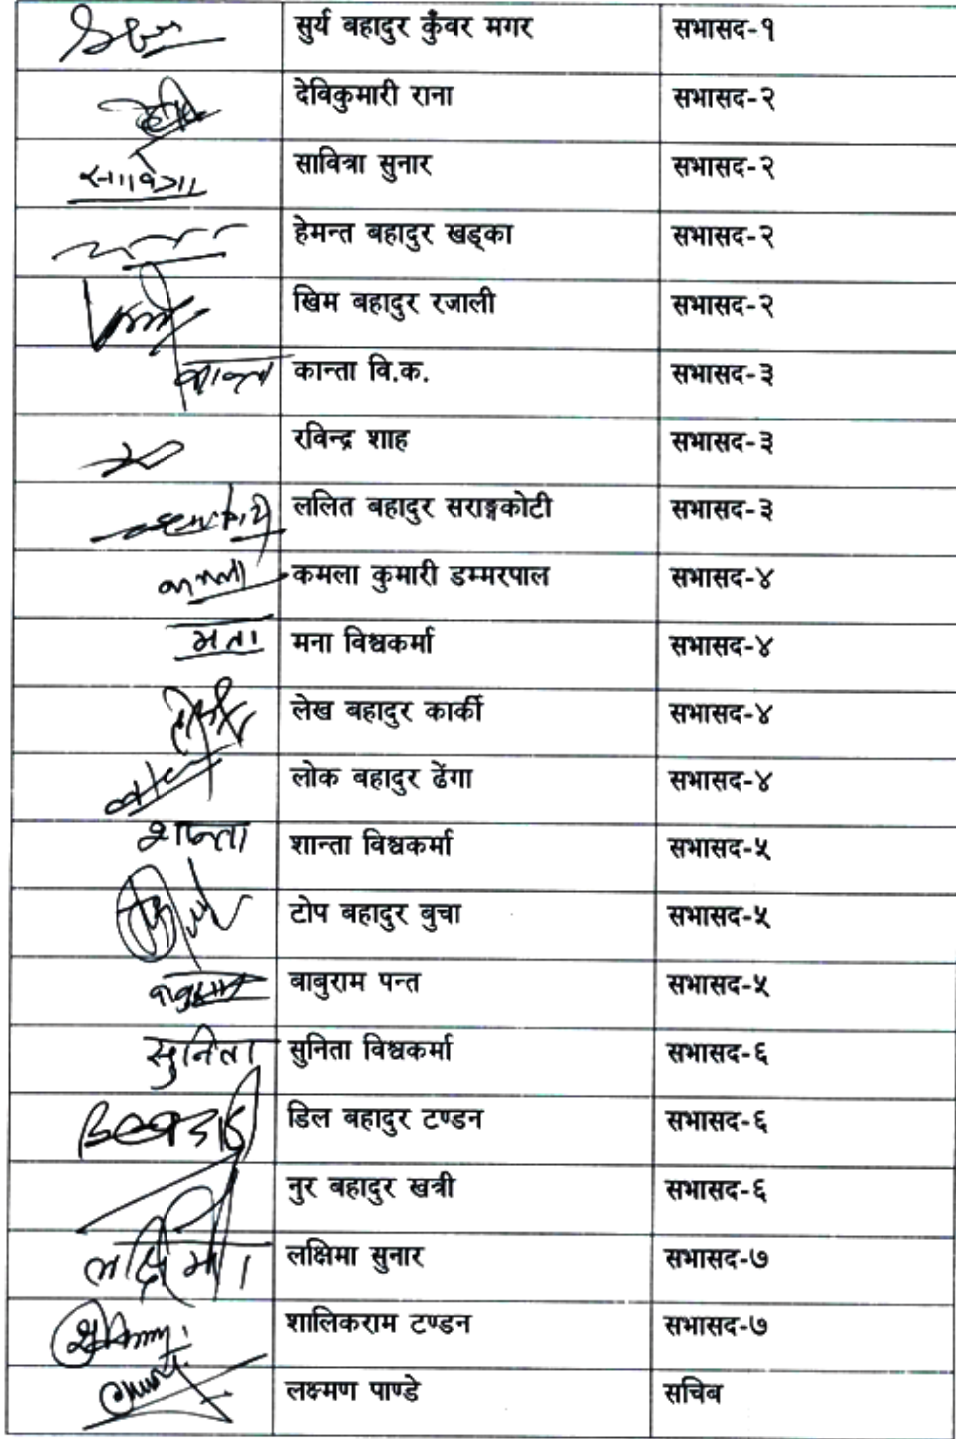 सुर्य बहादुर कुँवर मगर सभासद-१
देविकुमारी राना सभासद-२
सावित्रा सावित्रा सुनार सभासद-२
हेमन्त बहादुर खड्का सभासद-२
खिम बहादुर रजाली सभासद-२
कान्ता कान्ता वि.क. सभासद-३
रविन्द्र शाह सभासद-३
ललित बहादुर सराङ्गकोटी सभासद-३
कमला कमला कुमारी डम्मरपाल सभासद-४
मना विश्वकर्मा सभासद-४
लेख बहादुर कार्की सभासद-४
लोक बहादुर ढेंगा सभासद-४
शान्ता शान्ता विश्वकर्मा सभासद-५
टोप बहादुर बुचा सभासद-५
बाबुराम पन्त सभासद-५
सुनिता सुनिता विश्वकर्मा सभासद-६
डिल बहादुर टण्डन सभासद-६
नुर बहादुर खत्री सभासद-६
लक्षिमा लक्षिमा सुनार सभासद-७
शालिकराम टण्डन सभासद-७
लक्ष्मण पाण्डे सचिब